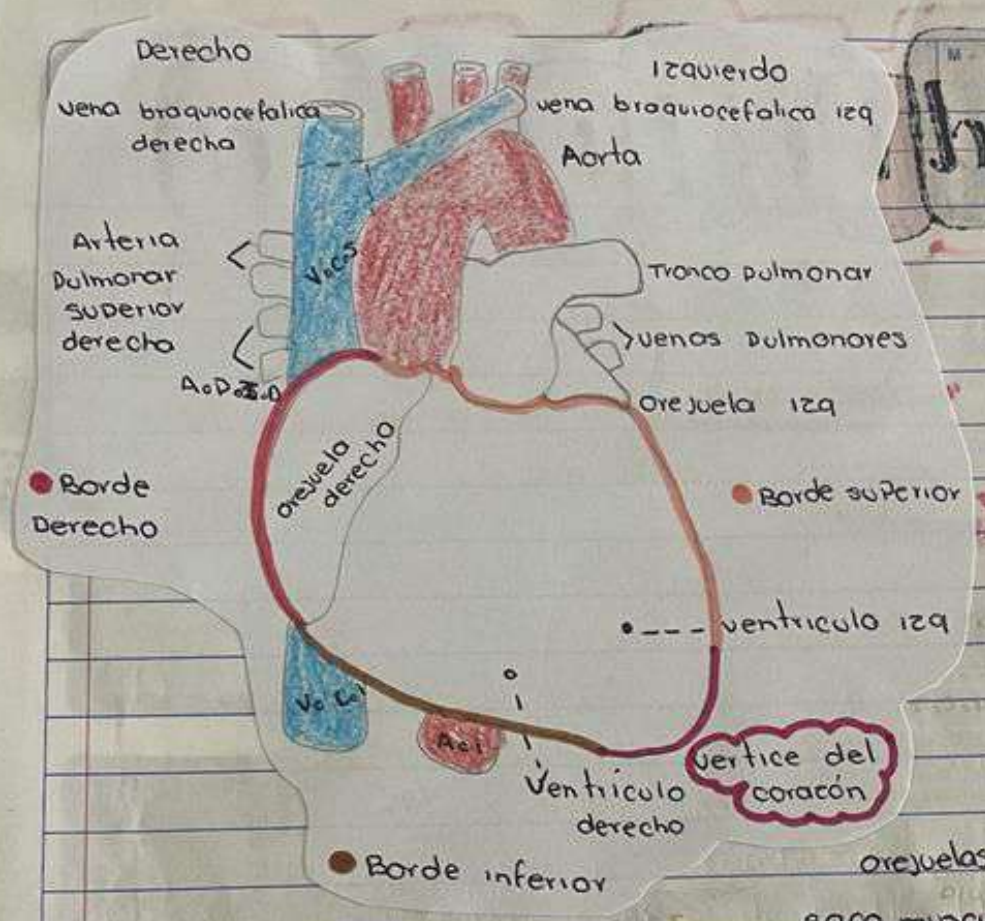 Derecho
Izquierdo
vena braquiocefalica
derecha
vena braquiocefalica izq
Aorta
Arteria
Pulmonar
superior
derecha
V.C.S
Tronco Pulmonar
venas Pulmonares
Orejuela izq
orejuela
derecho
Borde
Derecho
Borde superior
ventriculo izq
A.C.I
Ventriculo
derecho
vertice del
coracón
Borde inferior
orejuelas